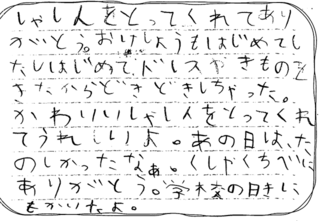 しゃしんをとってくれてあり
がとう。おけしょうもはじめてし
たしはじめてドレスやきものを
きたからどきどきしちゃった。
かわいいしゃしんをとってくれ
てうれしいよ。あの日は、た
のしかったなぁ。くしゃくちべに
ありがとう。学校の日きに
もかいたよ。